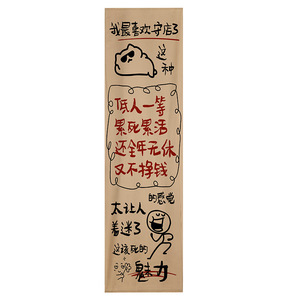 我最喜欢守店了
这种
低人一等
累死累活
还全年无休
又不挣钱
的感觉
太让人
着迷了
这该死的
魅力